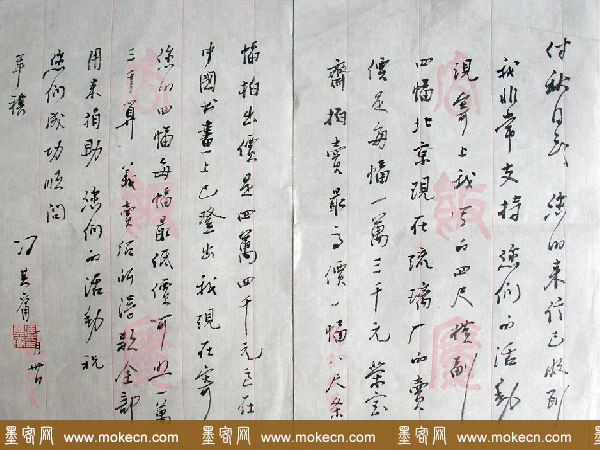 您的来信已收到
我非常支持您们的活动
现寄上我写的四尺横副
四幅北京现在琉璃厂的卖
價是每幅一萬三千元 荣宝
齋拍賣最高價一幅八尺条
幅拍出價是四萬四千元 已在
中國书畫上已登出 我现在寄
您的四幅每幅最低價可照一萬
三千算 義賣后所得款全部
用来捐助您们的活動 祝
您们成功 顺问
年禧
月廿
墨客网 www.mokecn.com 墨客网 www.mokecn.com 墨客网 www.mokecn.com